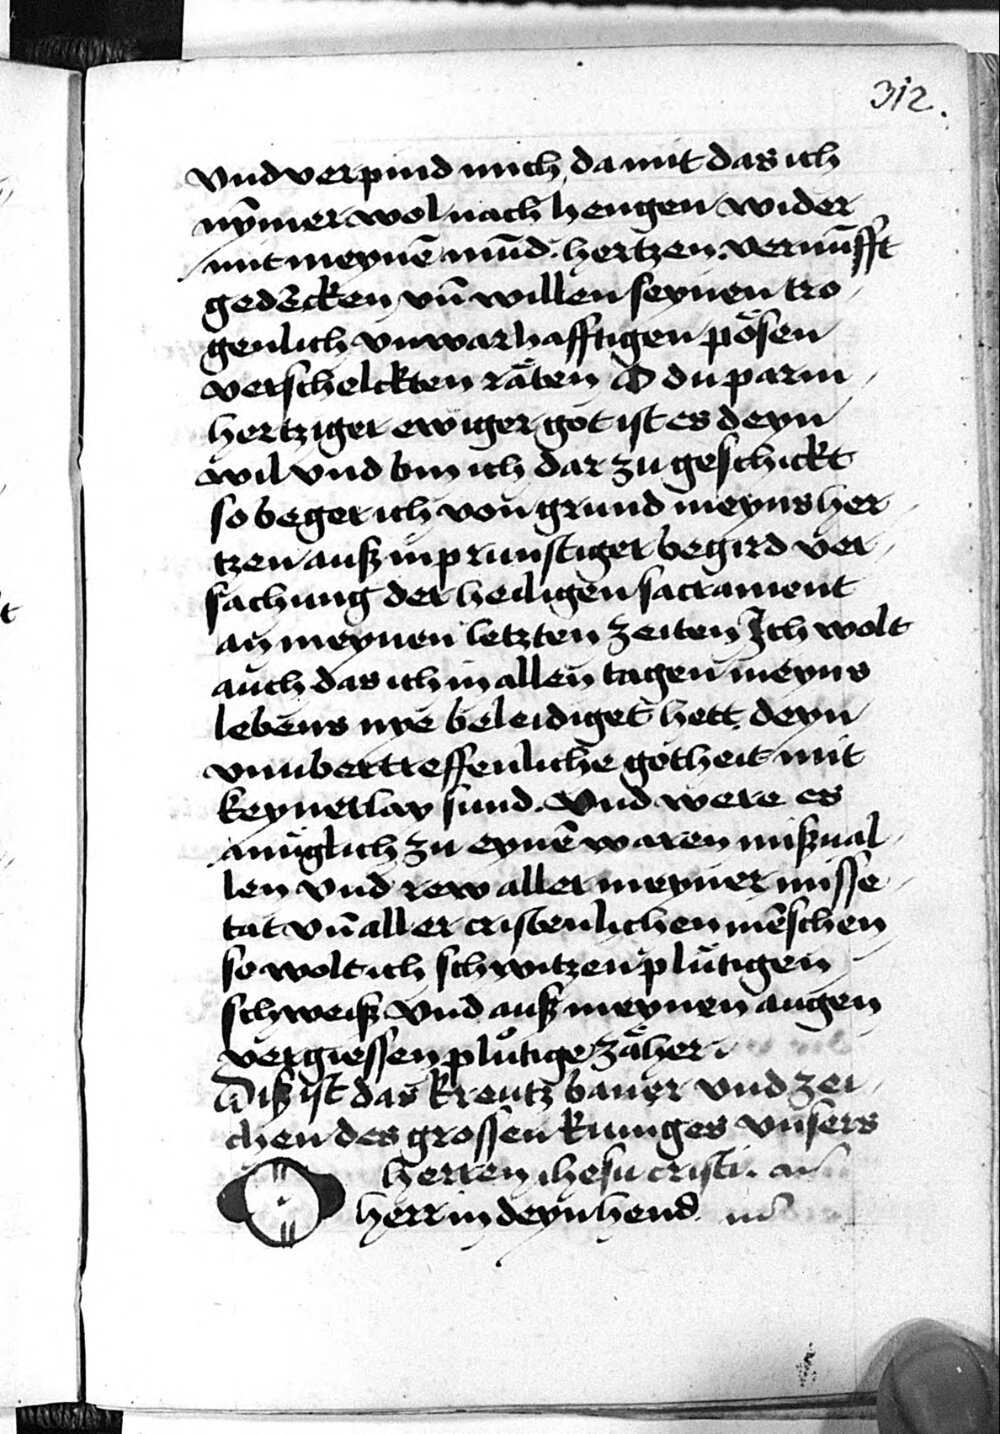 312.
vnd verpind mich da mit das ich
nȳmer wol nach hengen wider
mit meynē mūd. hertzen. vernūfft
gedēcken vn̄ willen seynen tro
genlich vnwarhafftigen pösen
verschelckten räten O du parm
hertziger ewiger got ist es deyn
wil vnd bin ich dar zu geschickt
so beger ich von grund meyns her
tzen auß inprunstiger begird ver
sachung der heiligen sacrament
an meynen letzten zeiten Ich wolt
auch das ich in allen tagen meyns
lebens nye beleidiget hett deyn
vnubertreffenliche gotheit mit
keynerlay sund. Vnd were es
muglich zu eynē waren mißual
len vnd rew aller meyner misse
tat vn̄ aller cristenlichen mēschen
so wolt ich schwitzen plůtigen
schweiß vnd auß meynen augen
vergiessen plůtige zäher.
Diß ist das kreutz baner vnd zei
chen des grossen kuniges vnsers
herren ihesu cristi.
O herr in deyn hend